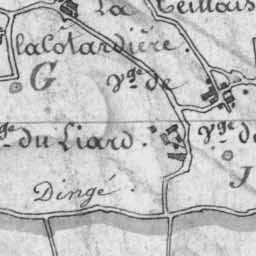 La Teillais
la Cotardière.
G
Vge de
ge du Liard.
Vge de
J
Dingé.